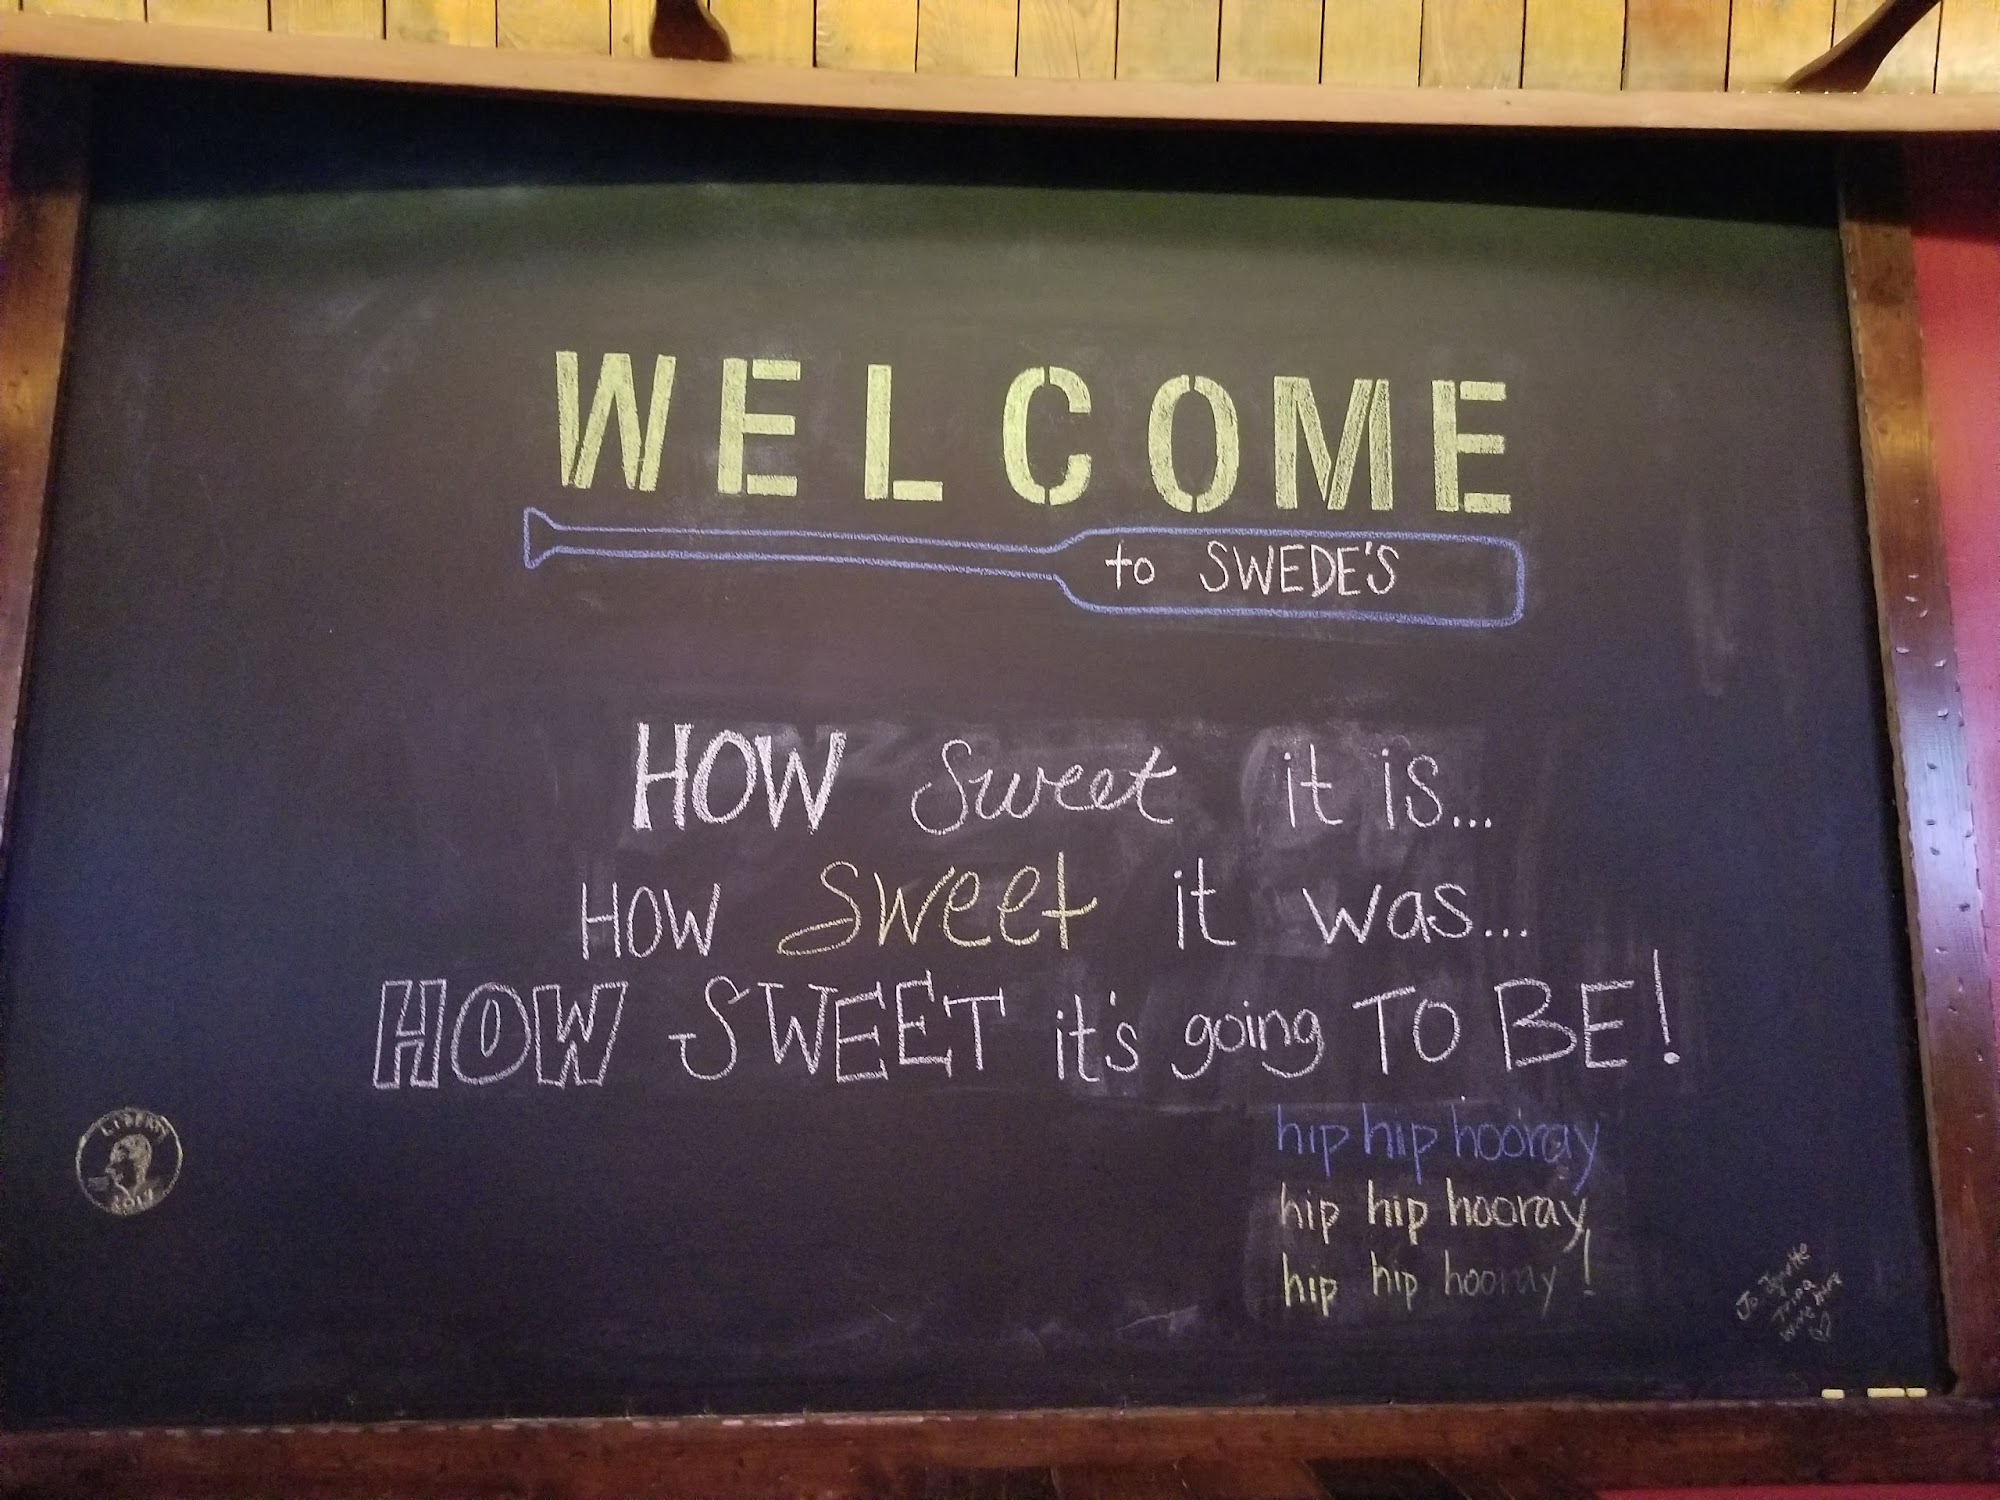 WELCOME
to SWEDE'S
HOW Sweet it is...
HOW Sweet it was...
HOW SWEET it's going TO BE!
hip hip hooray
hip hip hooray
hip hip hooray!
LIBERTY
2017